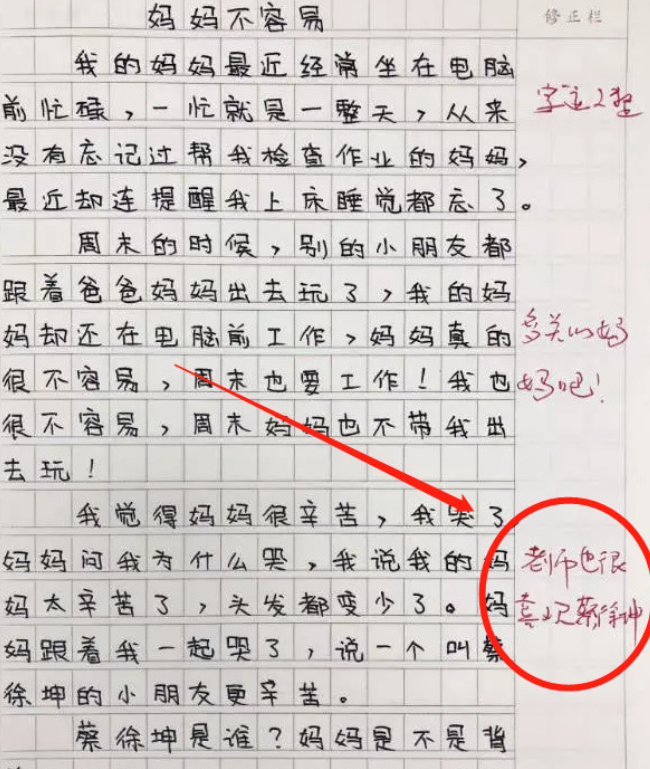 妈妈不容易
修正栏
我的妈妈最近经常坐在电脑
前忙碌，一忙就是一整天，从来
字迹工整
没有忘记过帮我检查作业的妈妈，
最近却连提醒我上床睡觉都忘了。
周末的时候，别的小朋友都
跟着爸爸妈妈出去玩了，我的妈
妈却还在电脑前工作，妈妈真的
多关心妈
很不容易，周末也要工作！我也
妈吧！
很不容易，周末妈妈也不带我出
去玩！
我觉得妈妈很辛苦，我哭了
妈妈问我为什么哭，我说我的妈
老师也很
妈太辛苦了，头发都变少了。妈
喜欢蔡徐坤
妈跟着我一起哭了，说一个叫蔡
徐坤的小朋友更辛苦。
蔡徐坤是谁？妈妈是不是背